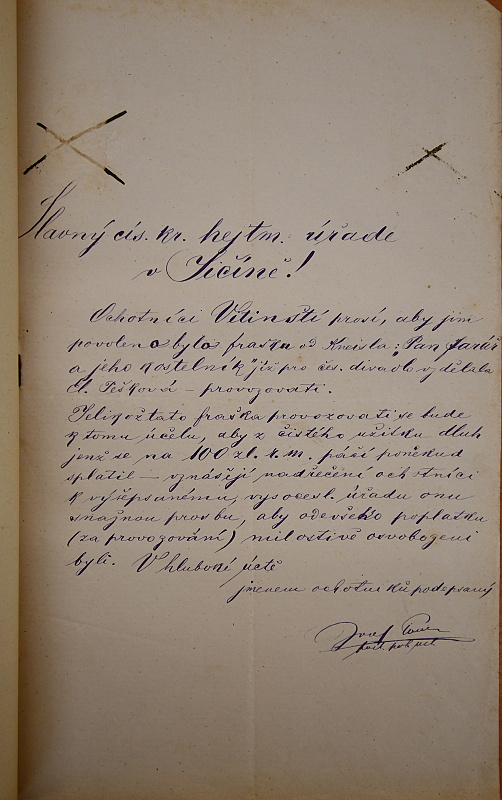 Slavný cís. kr. hejtm. úřade
v Jičíně!
Ochotníci Vitinští prosí, aby jim
povoleno bylo frašku od Kneisla: „Pan
a jeho kostelník" již pro čes. divadlo vzdělala
El. Pešková – provozovati.
Jelikož tato fraška provozovati se bude
k tomu účelu, aby z čistého užitku dluh
jenž se na 100 zl. k. m. páší poněkud
splatil – vznášejí nadřečení ochotníci
k výšepsanému, vysocesl. úřadu onu
snažnou prosbu, aby ode všeho poplatku
(za provozování) milostivě osvobozeni
byli. V hluboké úctě
jmenem ochotníků podepsaný
Josef